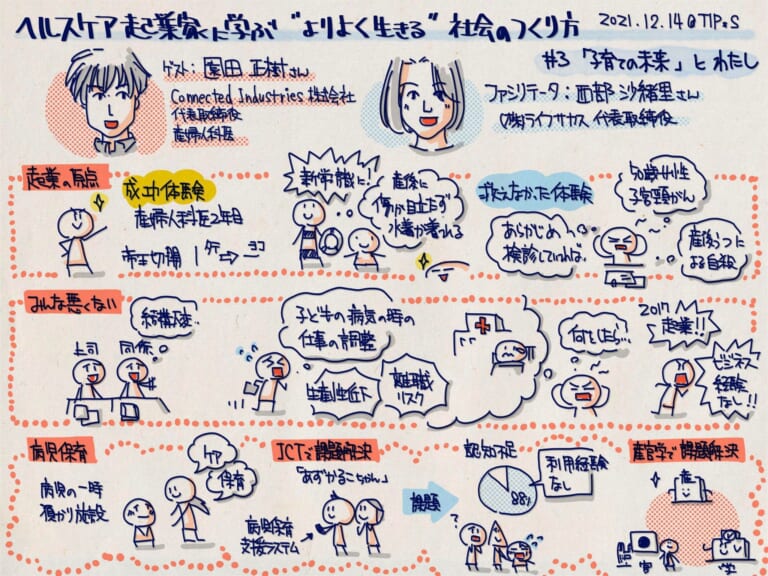 ヘルスケア起業家に学ぶ "よりよく生きる" 社会のつくり方
2021.12.14@TIP*S
#3 「子育ての未来」とわたし
ゲスト: 園田 正樹さん
Connected Industries 株式会社
代表取締役
産婦人科医
ファシリテータ: 西部 沙緒里さん
(株)ライフサカス 代表取締役
起業の原点
成功体験
産婦人科医2年目
帝王切開 1ケ → ヨコ
新常識に!
産後に
傷が目立たず
水着が着れる
救えなかった体験
あらかじめ
検診していれば、
30歳女性
子宮頸がん
産後うつに
よる自殺
みんな悪くない
結構大変…
上司
同僚
子どもの病気の時の
仕事の調整
生産性低下
離職
リスク
何をしたら…?
2017
起業!!
ビジネス
経験
なし!!
病児保育
病児の一時
預かり施設
ケア
保育
ICTで課題解決
「あずかるこちゃん」
病児保育
支援システム
課題
認知不足
88%
利用経験
なし
産官学で課題解決
産
官
学